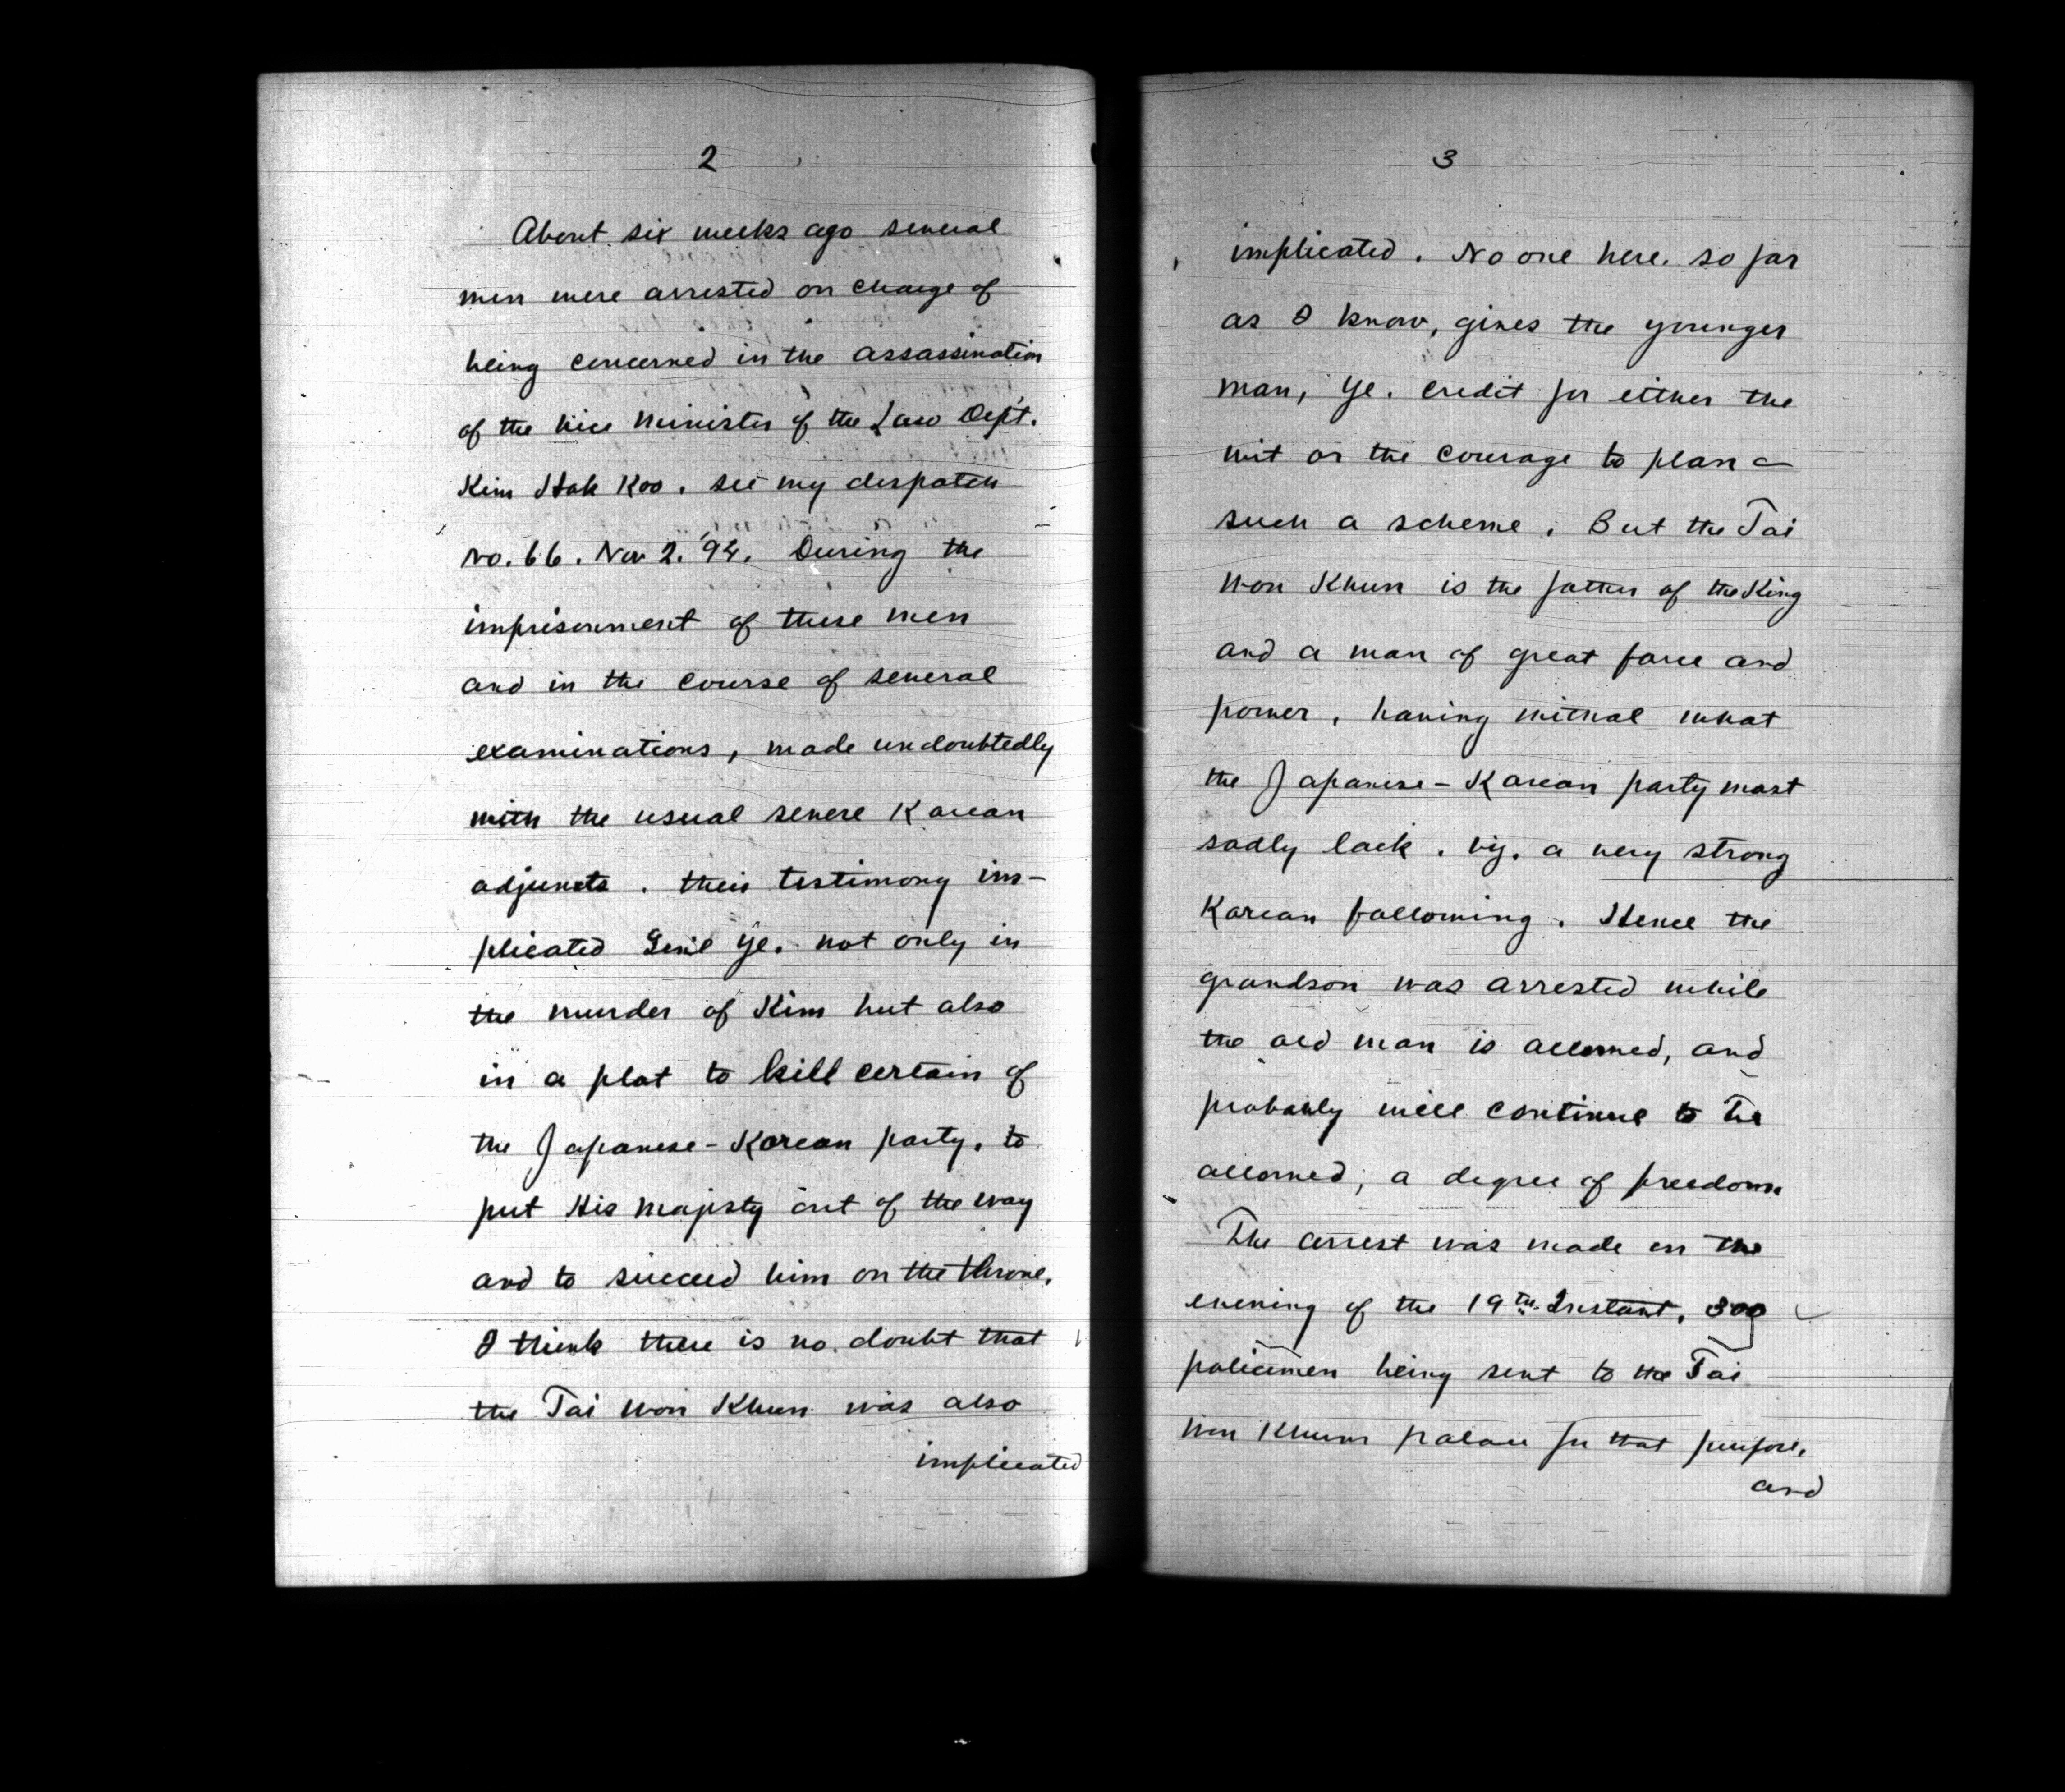 2
About six weeks ago several
men were arrested on charge of
being concerned in the assassination
of the Vice Minister of the Law Dep't.
Kim Hak Koo. see my despatch
No. 66. Nov 2. '94. During the
imprisonment of these men
and in the course of several
examinations, made undoubtedly
with the usual severe Korean
adjuncts. their testimony im-
plicated Gen'l Ye. not only in
the murder of Kim but also
in a plot to kill certain of
the Japanese-Korean party, to
put His Majesty out of the way
and to succeed him on the throne.
I think there is no doubt that
the Tai Won Khun was also
implicated
3
implicated. No one here. so far
as I know, gives the younger
man, Ye. credit for either the
wit or the courage to plan a
such a scheme. But the Tai
Won Khun is the father of the King
and a man of great force and
power, having withal what
the Japanese-Korean party most
sadly lack. viz. a very strong
Korean following. Hence the
grandson was arrested while
the old man is allowed, and
probably will continue to be
allowed; a degree of freedom.
The arrest was made on the
evening of the 19th. Instant, 300
policemen being sent to the Tai
Won Khuns palace for that purpose,
and